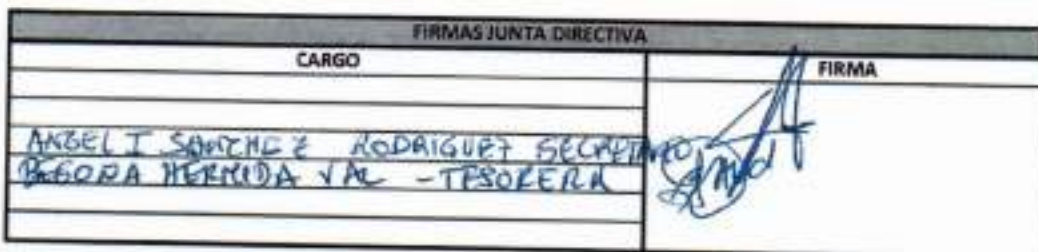 FIRMAS JUNTA DIRECTIVA
CARGO FIRMA
ANGEL I SANCHEZ RODRIGUEZ SECRETARIO
BEGOÑA HERMIDA VAL - TESORERA